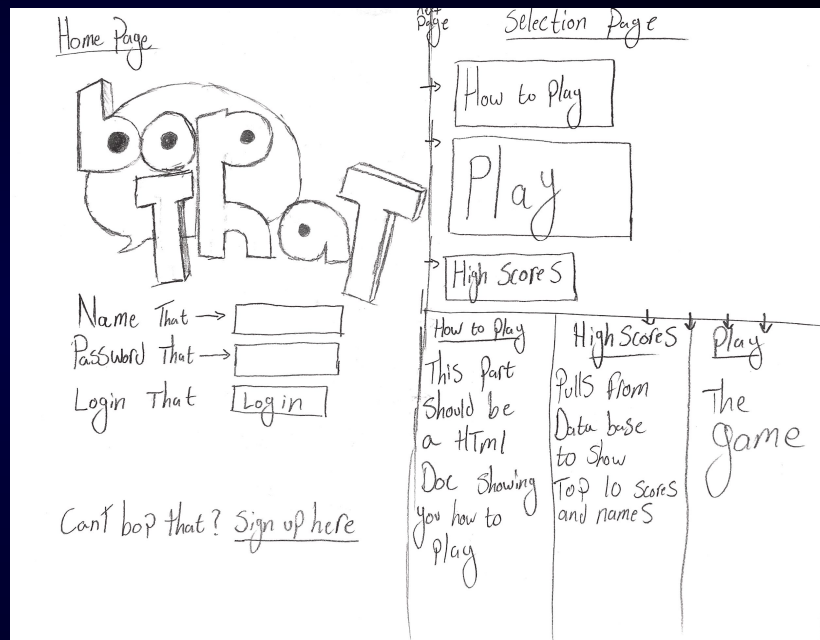 Home Page
bop
That
Name That
Password That
Login That
Login
Can't bop that? Sign up here
next
Page
Selection Page
How to Play
Play
High Scores
How to Play
This Part
Should be
a HTml
Doc Showing
you how to
Play
High Scores
Pulls from
Data base
to Show
Top 10 Scores
and names
Play
The
game